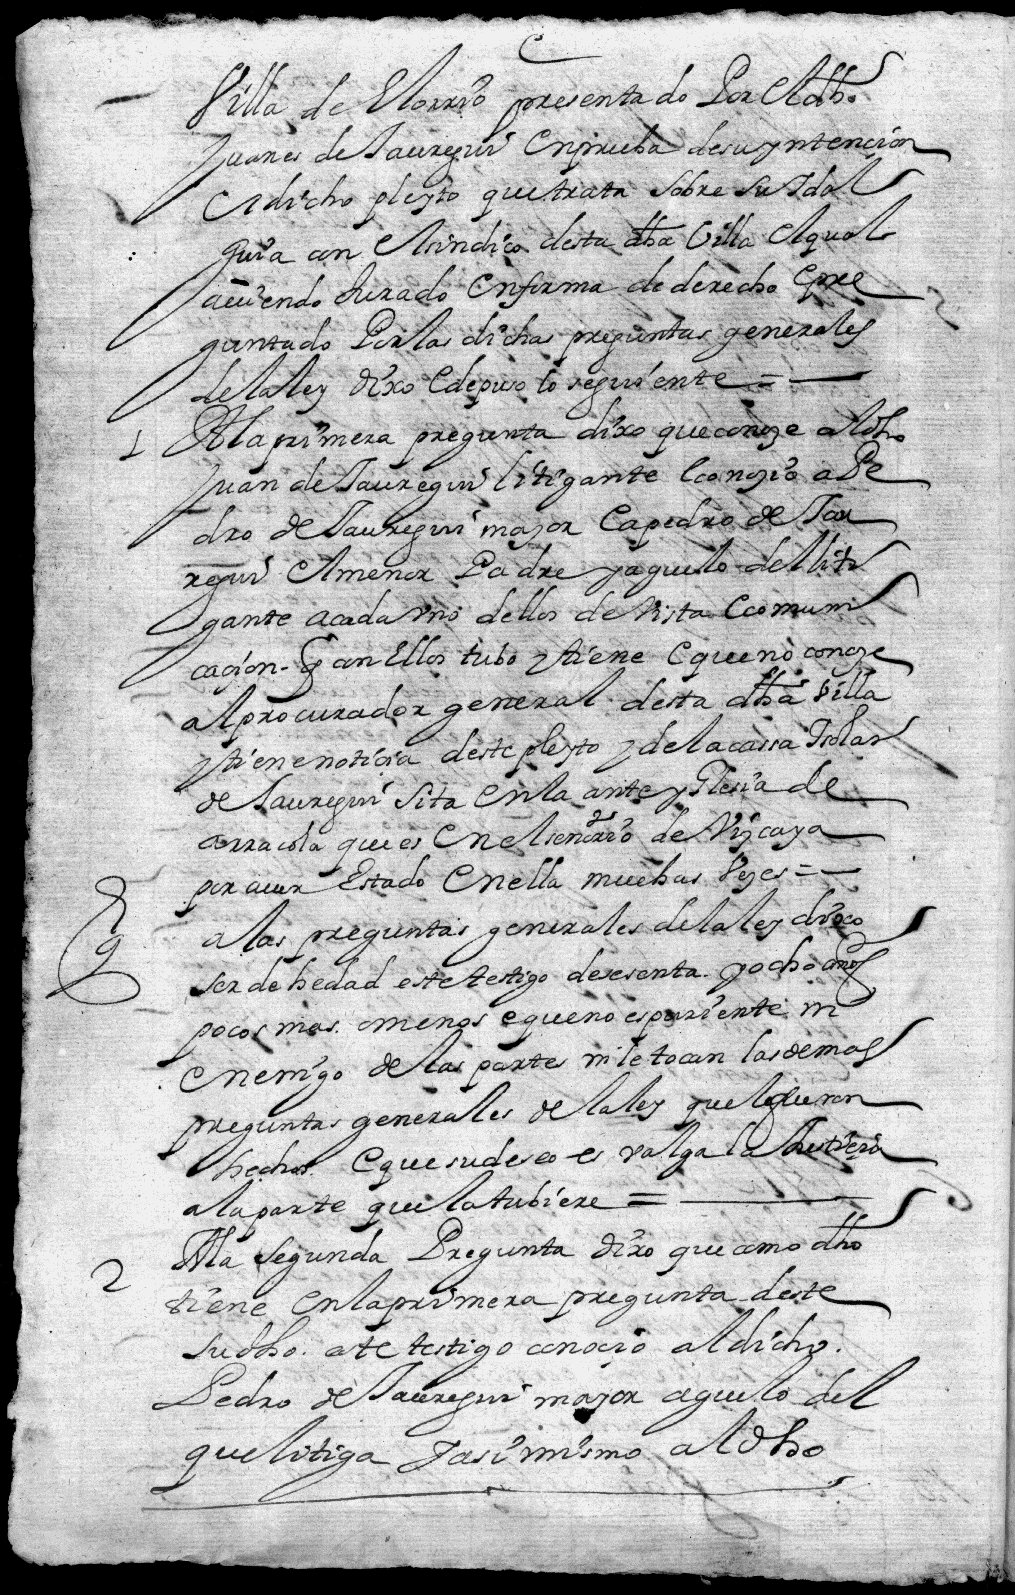 Villa de Elorrio presentado Por el dho.
Juanes de Jauregui en prueba de su yntencion
e dicho pleyto que trata sobre su Idal
guia con el sindico desta dha Villa el qual
auiendo Jurado en forma de derecho e pre
guntado Por las dichas preguntas generales
de la ley dixo e depuso lo seguiente =
1 A la primera pregunta dixo que conoze al dho
Juan de Jauregui litigante e conozio a Pe
dro de Jauregui mayor e a pedro de Jau
regui el menor Padre y aguelo del liti
gante a cada vno dellos de vista e comuni
cacion que con Ellos tubo y tiene e que no conoze
al procurador general desta dha villa
y tiene noticia deste pleyto y de la cassa Isolar
de Jauregui sita en la ante yglesia de
arracola que es en el senorio de Vizcaya
por auer Estado en ella muchas vezes =
Eg a las preguntas generales de la ley dixo
ser de hedad este testigo de sesenta y ocho años
pocos mas omenos e que no es pariente ni
enemigo de las partes ni le tocan las demas
preguntas generales de la ley que le fueron
hechas e que su deseo es valga la Justicia
a la parte que la tubiere =
2 A la segunda Pregunta dixo que como dho
tiene en la primera pregunta deste
su dho. este testigo conocio al dicho.
Pedro de Jauregui mayor aguelo del
que litiga y asi mismo al dho